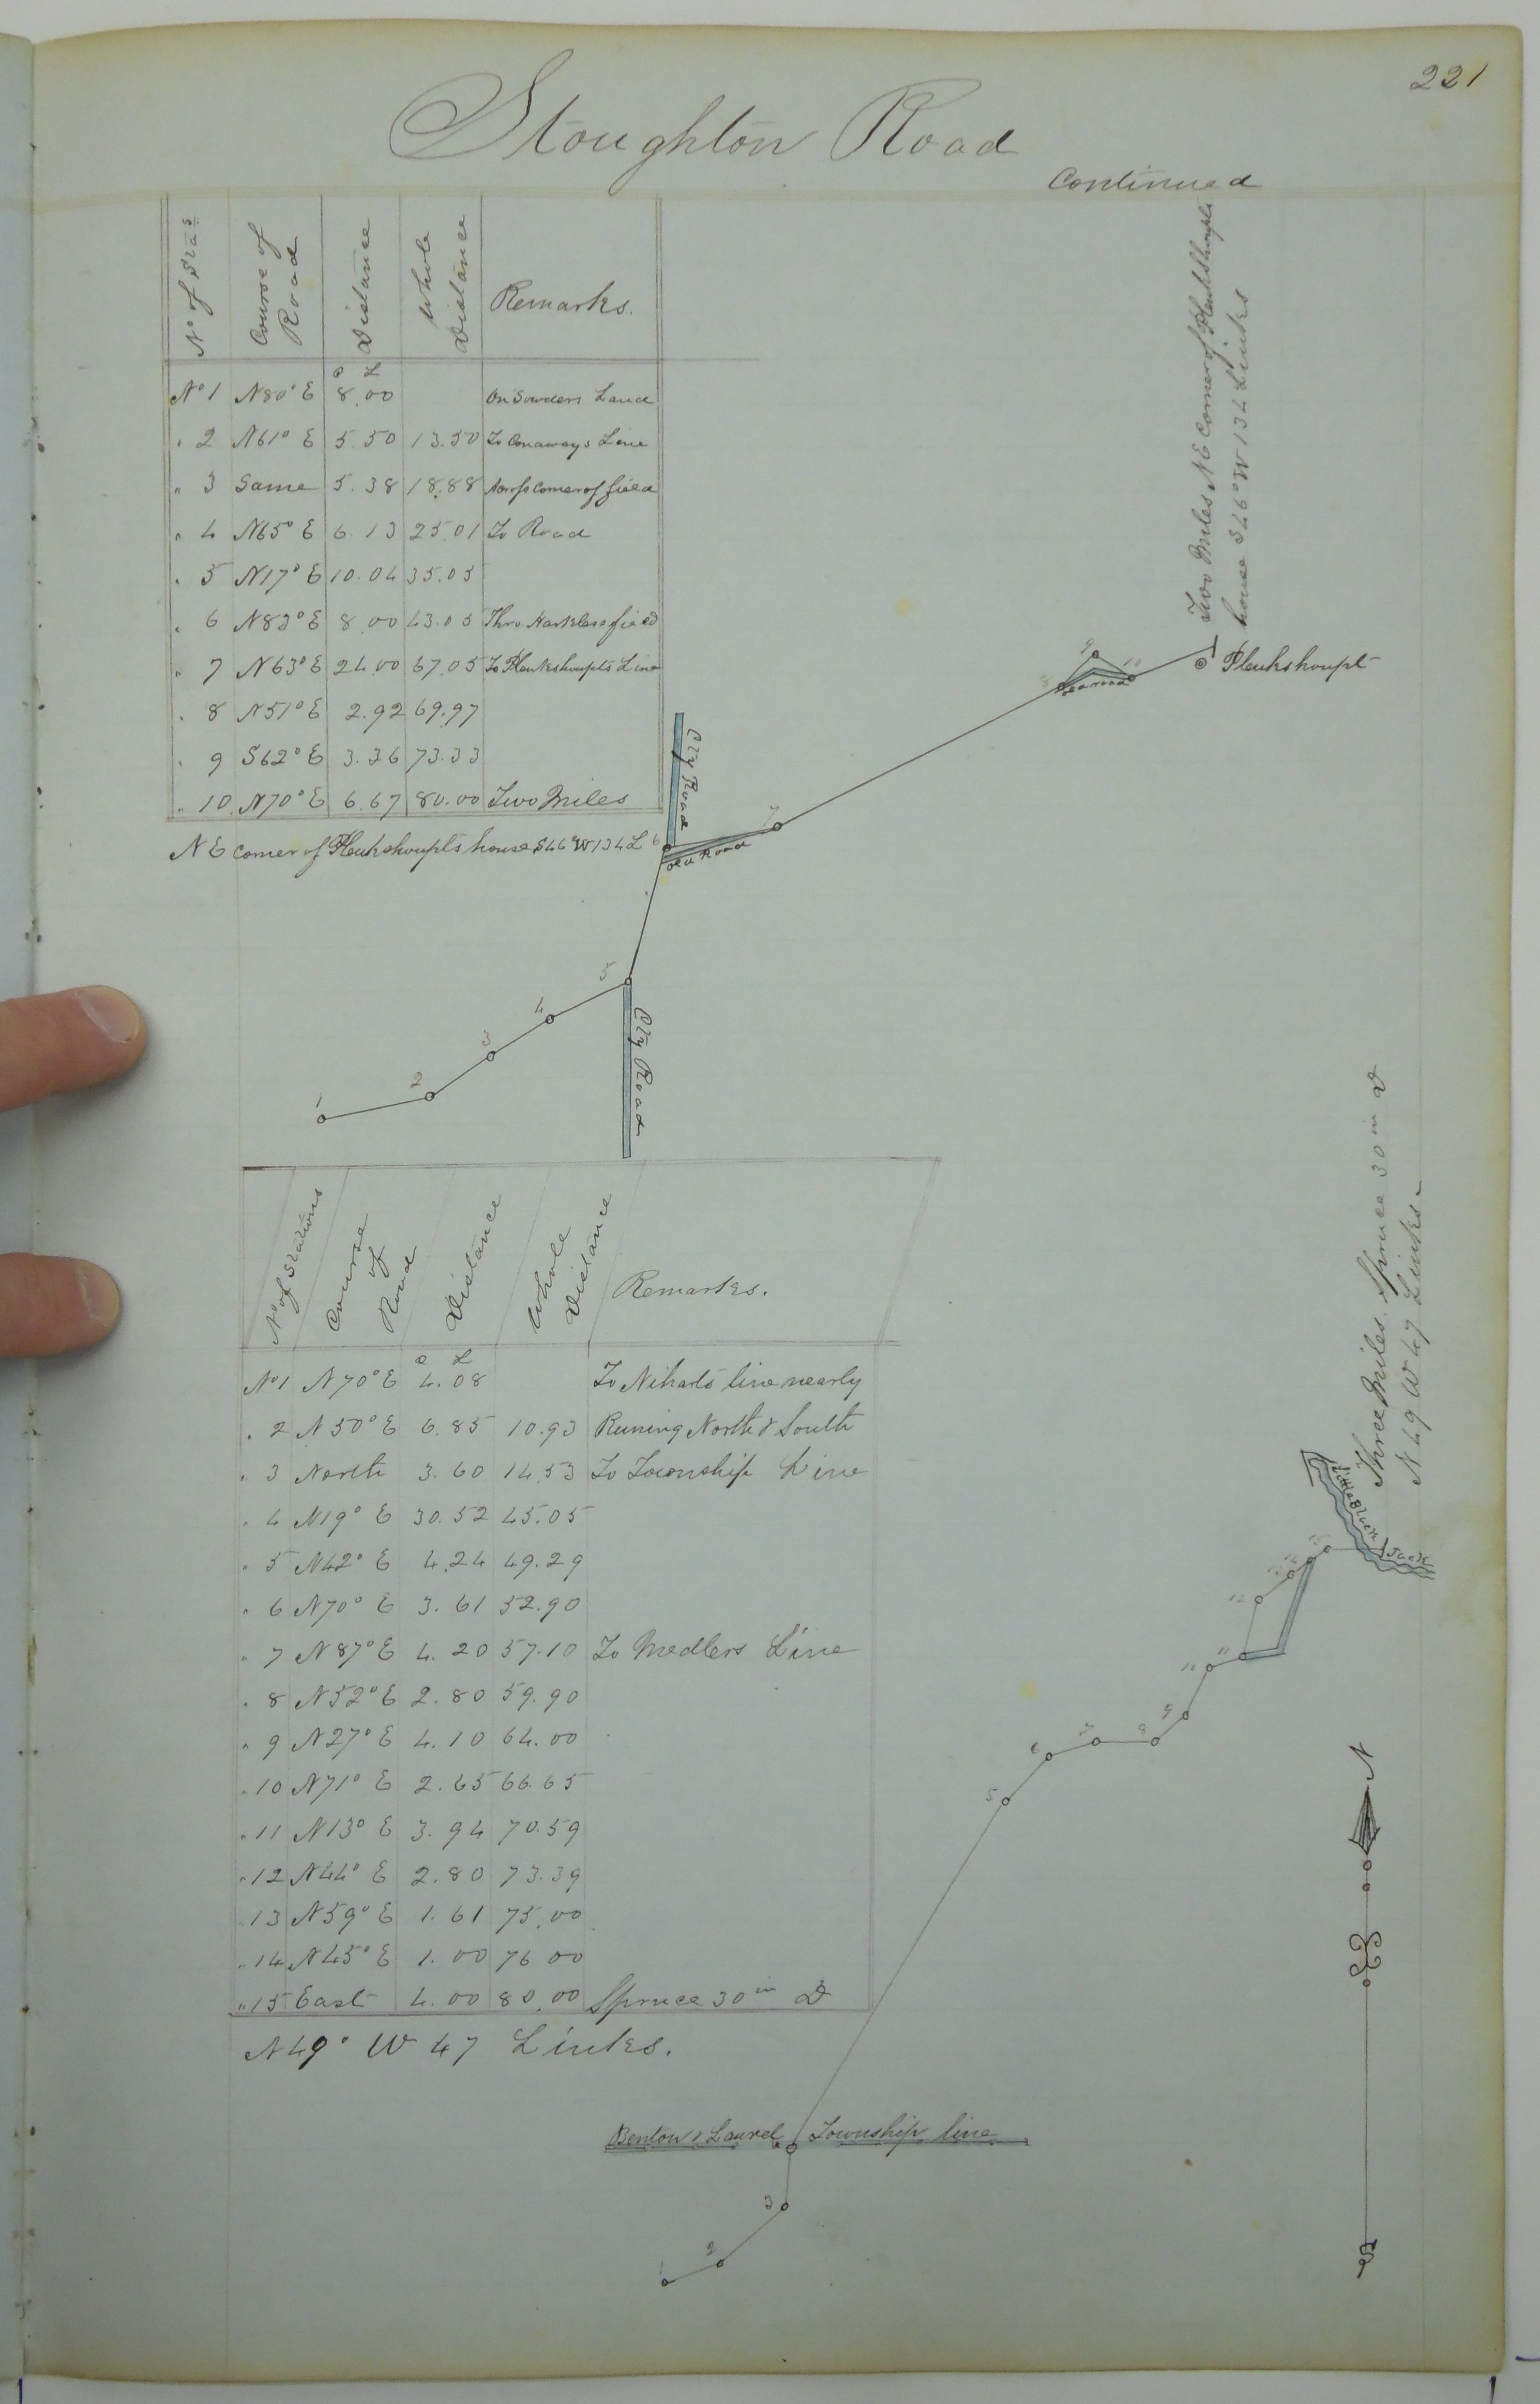 221
Stoughton Road
Continued
No of Stas Course of Road Distance Whole Distance Remarks.
C L
No 1 N80° E 8.00 On Sowders Land
" 2 N61° E 5.50 13.50 To Conaways Line
" 3 Same 5.38 18.88 Across Corner of field
" 4 N65° E 6.13 25.01 To Road
" 5 N17° E 10.04 35.05
" 6 N83° E 8.00 43.05 Thro Harkless field
" 7 N63° E 24.00 67.05 To Pleukshoupts Line
" 8 N51° E 2.92 69.97
" 9 S62° E 3.36 73.33
" 10 N70° E 6.67 80.00 Two Miles
N E corner of Pleukshoupts house S46°W 134 L
Two Miles N E Corner of Pleukshoupts
house S46°W 134 Links
Pleukshoupt
9
8 10
Old Road
Cty Road
7
6
Old Road
5
4
3
2
1
Cty Road
No of Stations Course of Road Distance Whole Distance Remarks.
C L
No 1 N70° E 4.08 To Niharts line nearly
" 2 N50° E 6.85 10.93 Runing North & South
" 3 North 3.60 14.53 To Township Line
" 4 N19° E 30.52 45.05
" 5 N42° E 4.24 49.29
" 6 N70° E 3.61 52.90
" 7 N87° E 4.20 57.10 To Medlers Line
" 8 N52° E 2.80 59.90
" 9 N27° E 4.10 64.00
" 10 N71° E 2.65 66.65
" 11 N13° E 3.94 70.59
" 12 N44° E 2.80 73.39
" 13 N59° E 1.61 75.00
" 14 N45° E 1.00 76.00
" 15 East 4.00 80.00 Spruce 30 in D
N49° W 47 Links.
Three Miles. Spruce 30 in D
N 49 W 47 Links.
Little Black Jack
15
14
13
12
11
10
9
8
7
6
5
N
Benton & Laurel Township line
3
2
1
S